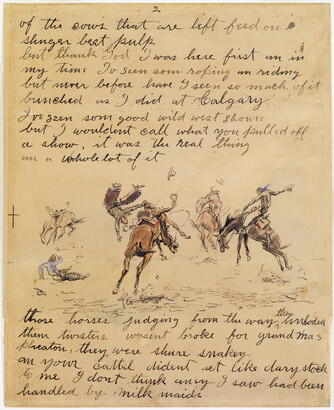 2
of the cows that are left feed on
slunger beat pulp
but thank God I was here first an in
my time Iv seen som roping an riding
but never before have I seen so much of it
bunched as I did at Calgary
Ive seen som good wild west showes
but I wouldent call what you pulled off
a show, it was the real thing
an a whole lot of it
those horses judging from the way they unloded
them twisters wasent broke for grand mas
pheaton, they were shure snakey
an your cattel dident act like dary stock
to me I dont think aney I saw had been
handled by milk maids